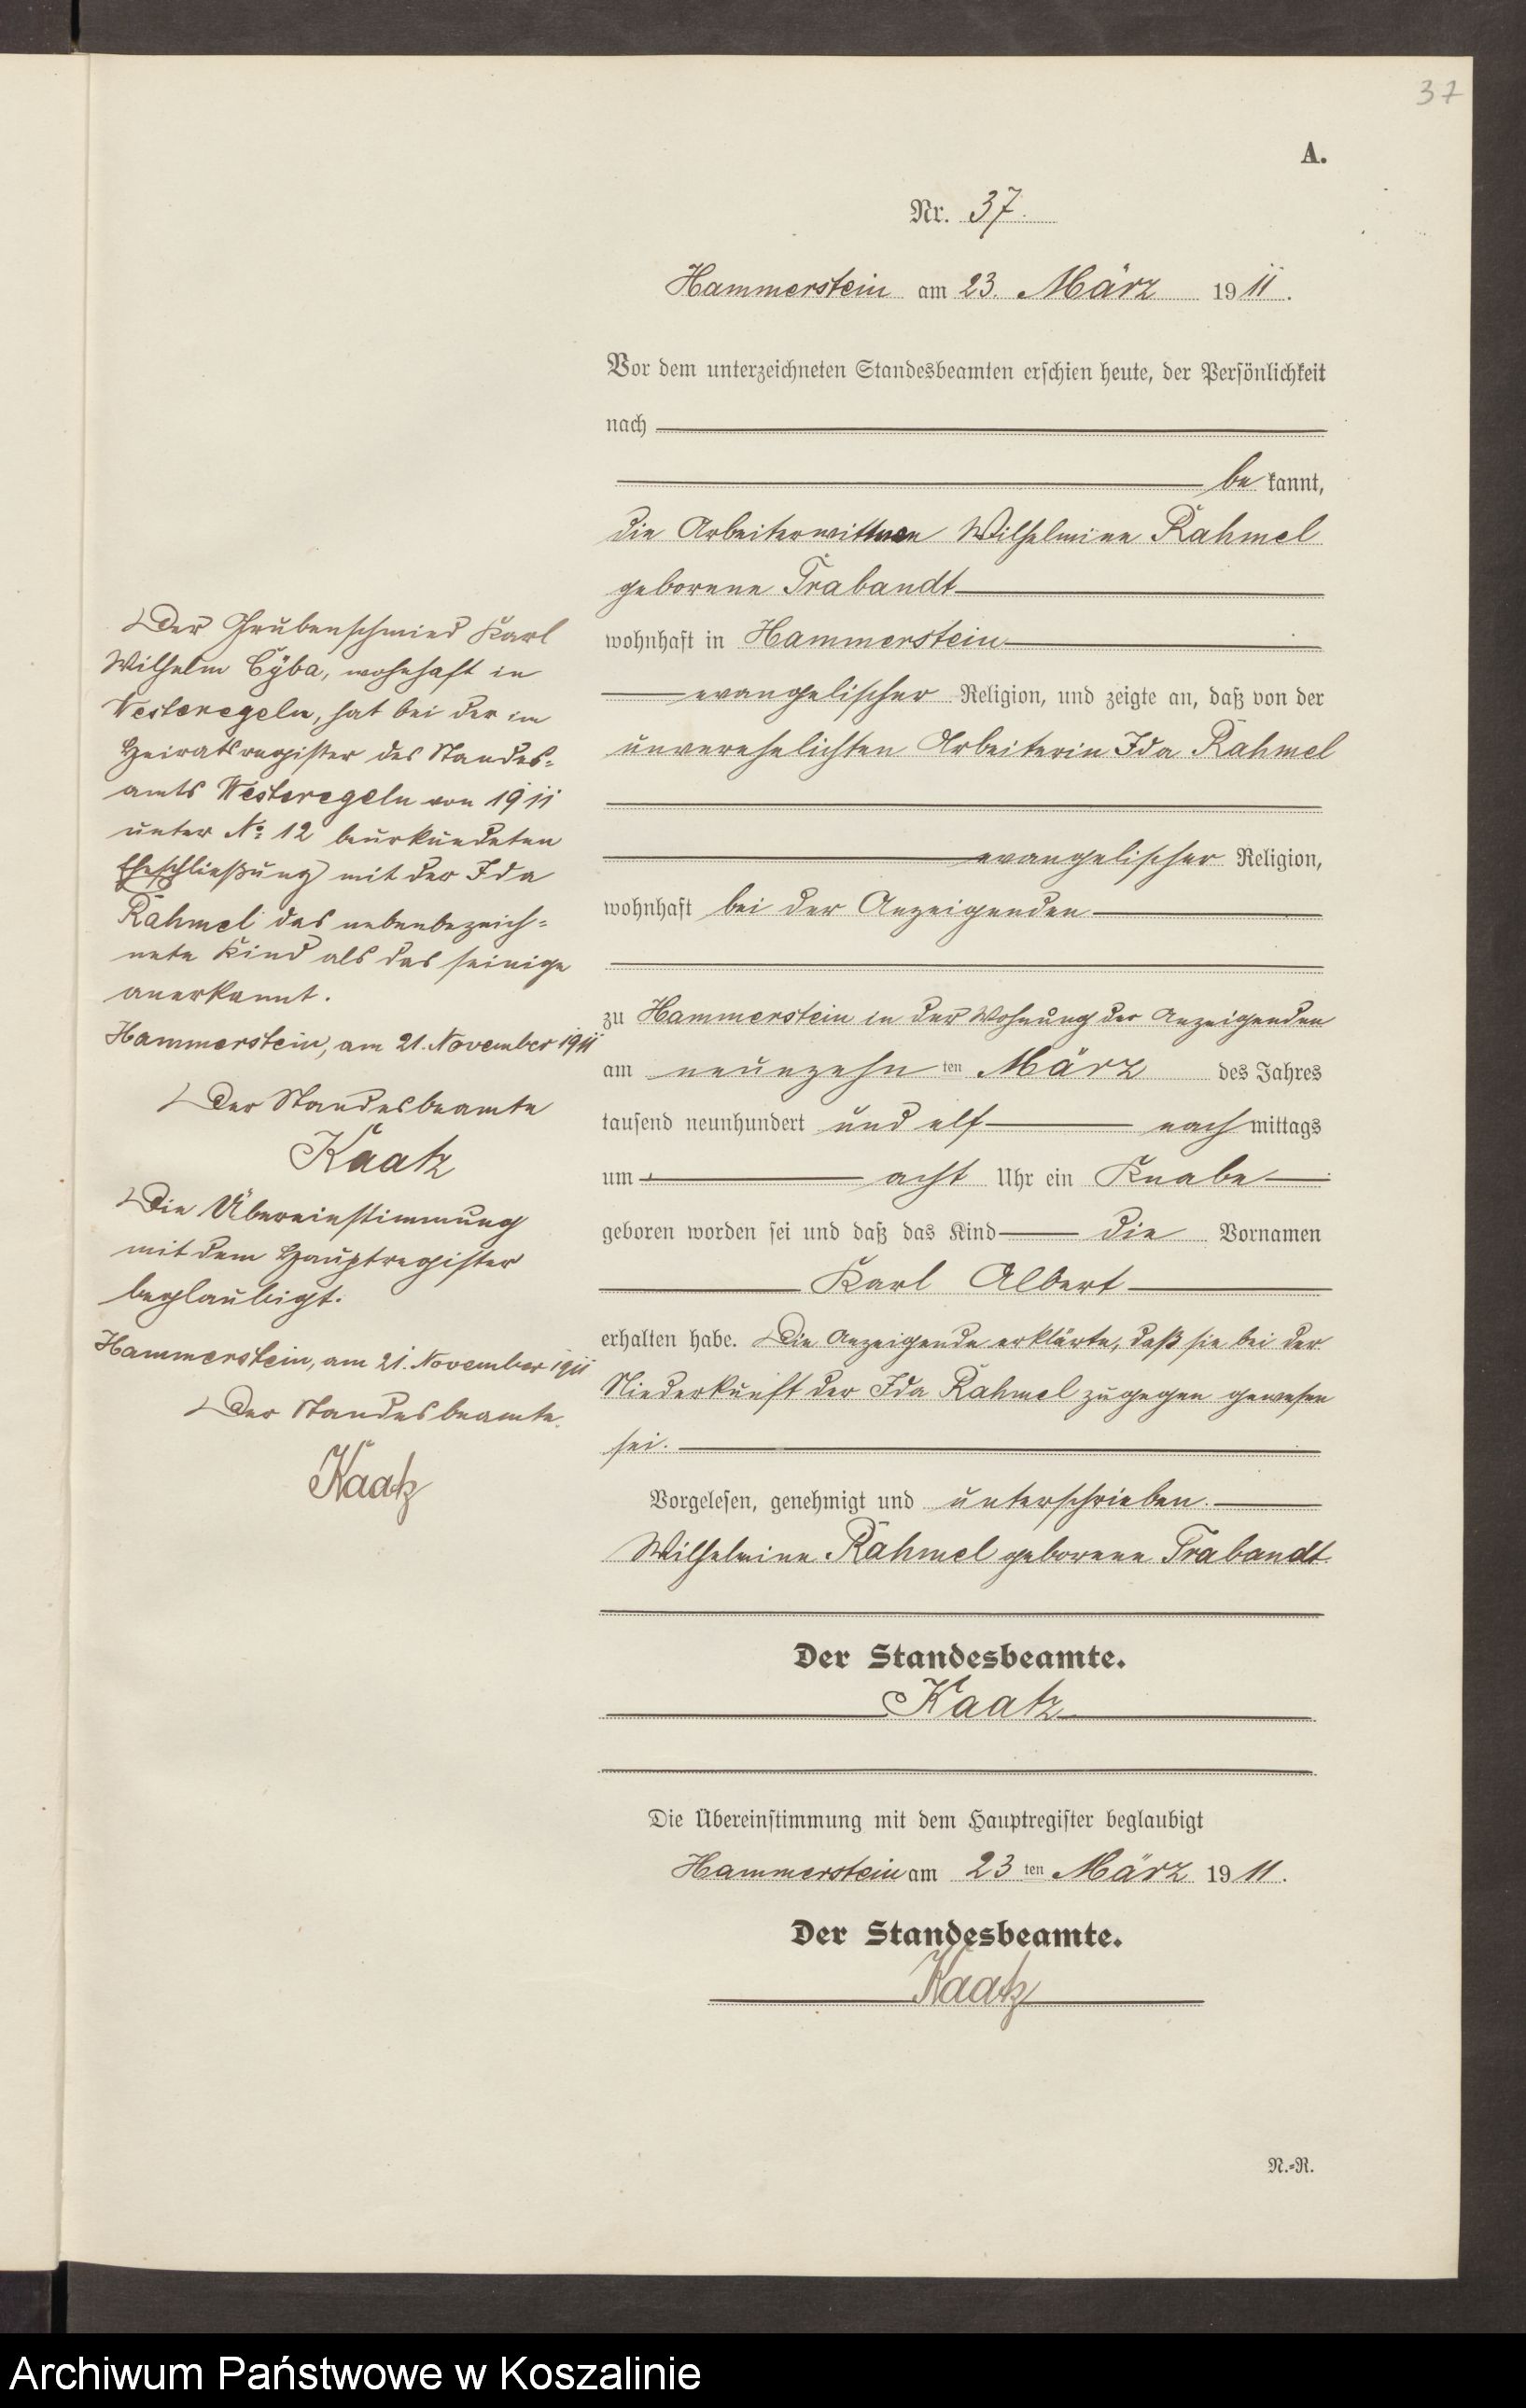 37
A.
Nr. 37.
Hammerstein am 23. März 1911.
Vor dem unterzeichneten Standesbeamten erschien heute, der Persönlichkeit
nach
be kannt,
die Arbeiterwittwe Wilhelmine Rahmel
geborene Trabandt
wohnhaft in Hammerstein
evangelischer Religion, und zeigte an, daß von der
unverehelichten Arbeiterin Ida Rahmel
evangelischer Religion,
wohnhaft bei der Anzeigenden
zu Hammerstein in der Wohnung der Anzeigenden
am neunzehn ten März des Jahres
tausend neunhundert und elf nach mittags
um acht Uhr ein Knabe
geboren worden sei und daß das Kind die Vornamen
Karl Albert
erhalten habe. Die Anzeigende erklärte, daß sie bei der
Niederkunft der Ida Rahmel zugegen gewesen
sei.
Vorgelesen, genehmigt und unterschrieben.
Wilhelmine Rahmel geborene Trabandt.
Der Standesbeamte.
Kaatz
Die Übereinstimmung mit dem Hauptregister beglaubigt
Hammerstein am 23 ten März 1911.
Der Standesbeamte.
Kaatz
N.=R.
Der Grubenschmied Karl
Wilhelm Cyba, wohnhaft in
Westeregeln, hat bei der im
Heiratsregister des Standes=
amts Westeregeln von 1911
unter No 12 beurkundeten
Eheschließung mit der Ida
Rahmel das nebenbezeich=
nete Kind als das seinige
anerkannt.
Hammerstein, am 21. November 1911
Der Standesbeamte
Kaatz
Die Übereinstimmung
mit dem Hauptregister
beglaubigt.
Hammerstein, am 21. November 1911
Der Standesbeamte.
Kaatz
Archiwum Państwowe w Koszalinie